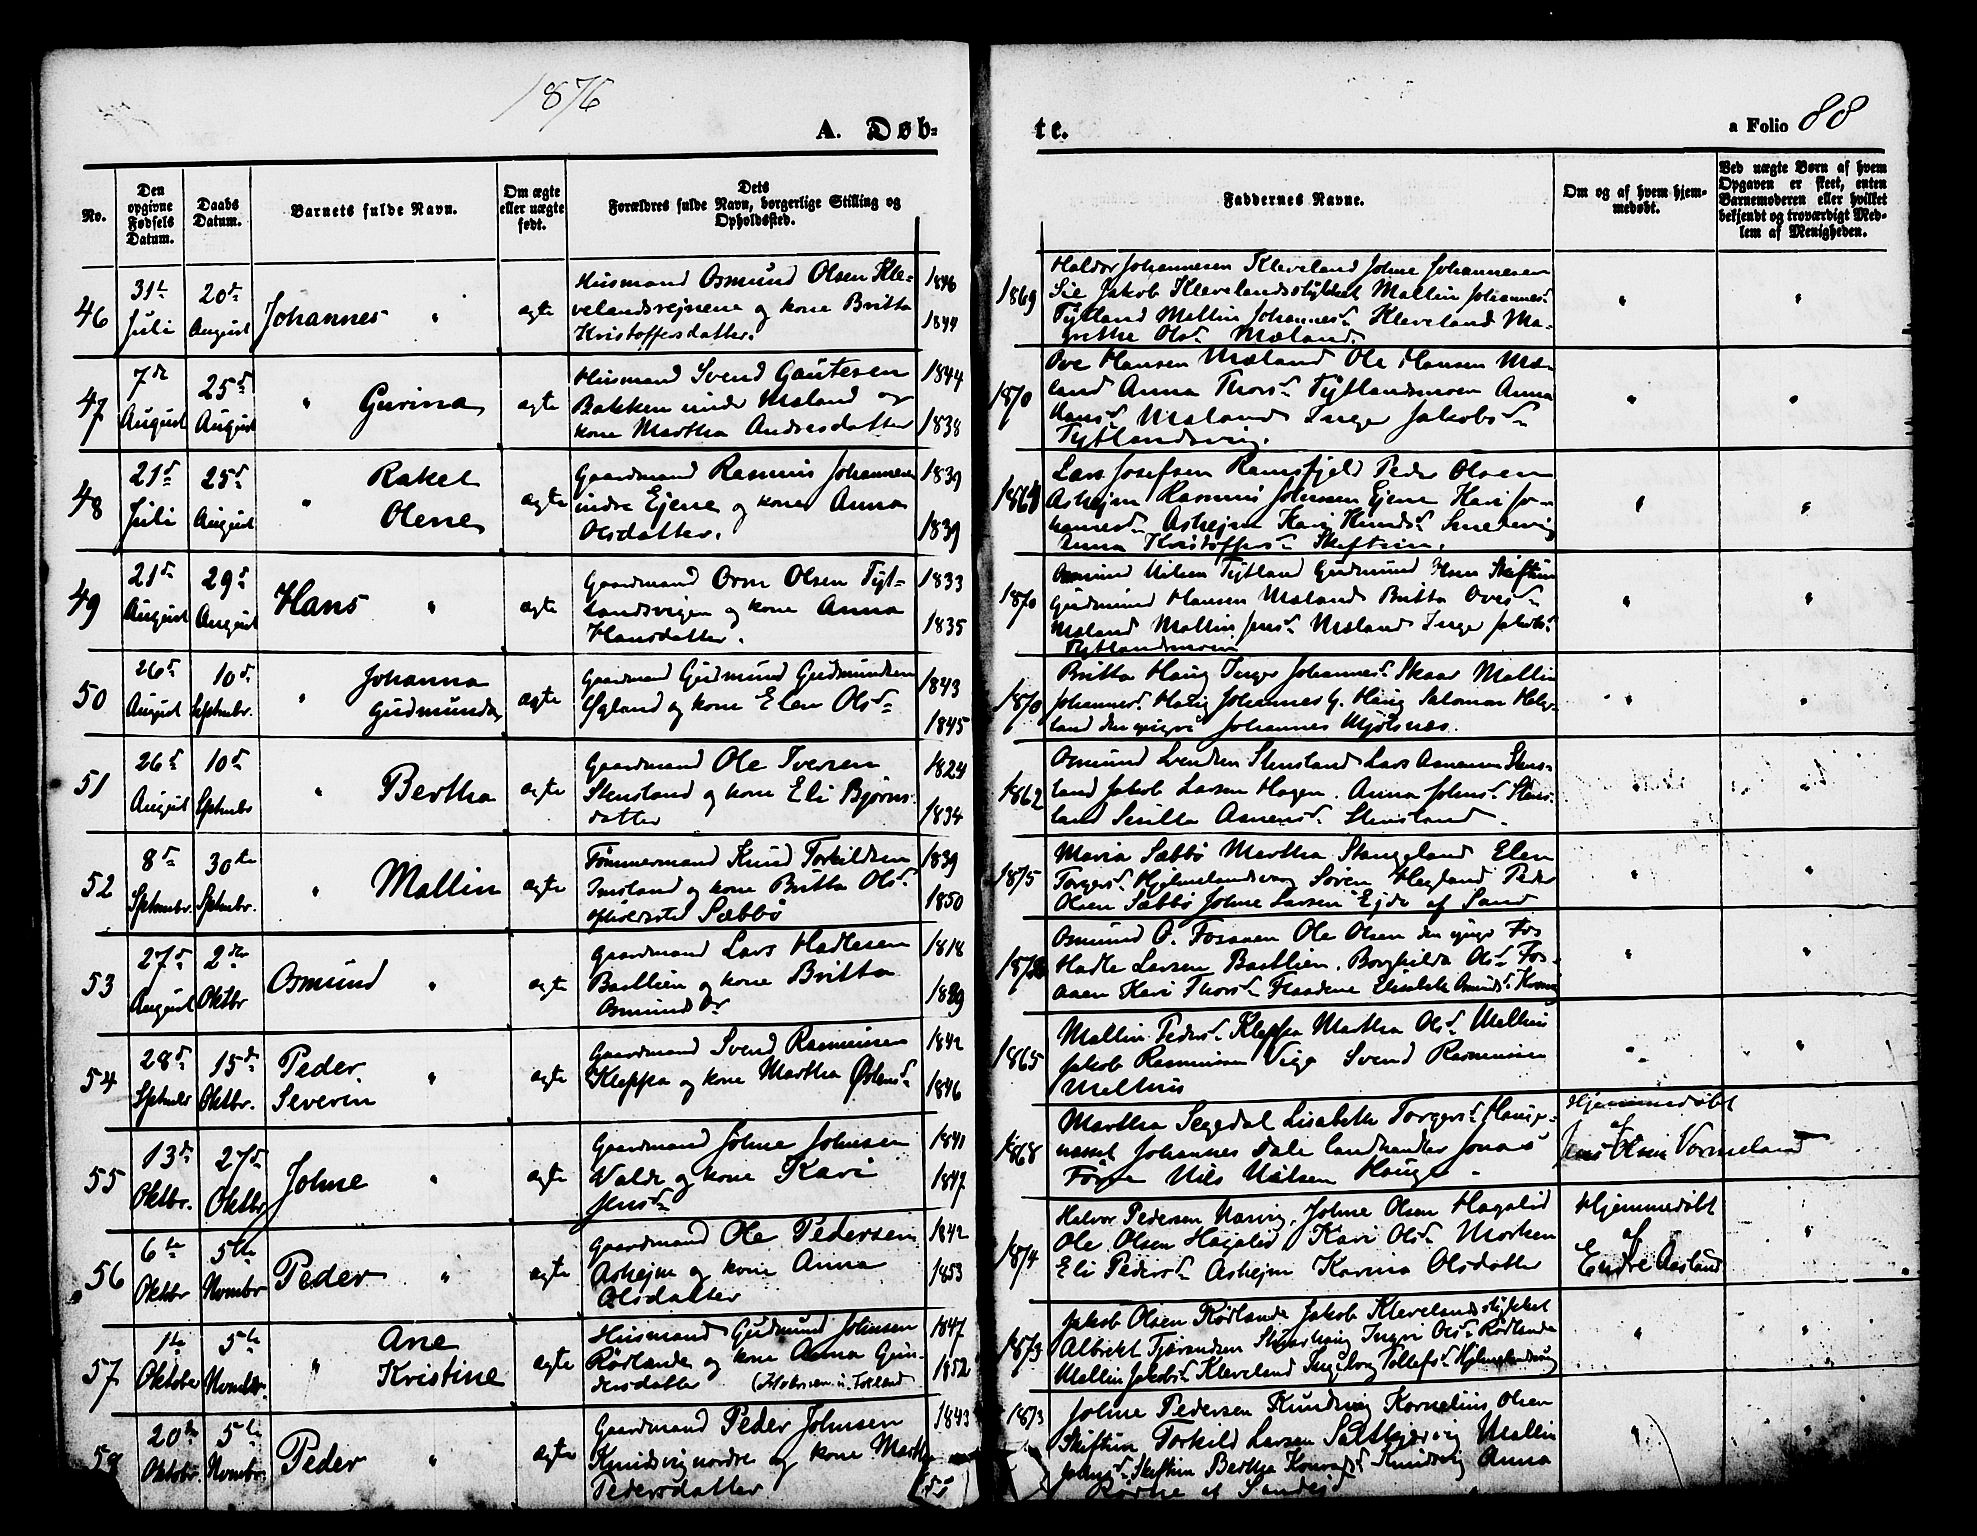 1876
A. Døb-
te.
a Folio 88
No.
Den opgivne Fødsels Datum.
Daabs Datum.
Barnets fulde Navn.
Om ægte eller uægte født.
Dets Forældres fulde Navn, borgerlige Stilling og Opholdssted.
Faddernes Navne.
Om og af hvem hjemmedøbt.
Ved uægte Børn af hvem Opgaven er skeet, enten Barnemoderen eller hvilket bekjendt og troværdigt Medlem af Menigheden.
46 31te Juli 20de August Johannes " ægte
Husmand Osmund Olsen Kle-
velandsvejnene og kone Britta
Kristoffersdatter.
1846
1844
1869
Haldor Johannesen Kleveland Johne Johannesen
Sie Jakob Klevelandsstykket Mallin Johannesd.
Tytland Mallin Johannesd. Kleveland Ma-
grethe Olsd. Mæland.
47 7de August 25de August " Gurina ægte
Husmand Svend Gautesen
Bakken under Mæland og
kone Martha Andreasdatter
1844
1838
1870
Ove Hansen Mæland Ole Hansen Mæ-
land Anna Thorsd. Tytlandsmoen Anna
Hansd. Mæland Inger Jakobsd.
Tytlandsvig.
48 21de Juli 25de August " Rakel Olene ægte
Gaardmand Rasmus Johannesen
indre Ejene og kone Anna
Olsdatter.
1839
1839
Lars Josefsen Ramsfjeld Peder Olsen
Ashejm Rasmus Johnsen Ejene Kari Jo-
hannesd. Ashejm Kari Knudsd.
Anna Kristoffersd. Skeftun.
49 21de August 29de August Hans " ægte
Gaardmand Orm Olsen Tyt-
landsvigen og kone Anna
Hansdatter.
1833
1835
1870
Osmund Nilsen Tytland Gudmund Skiftun
Gudmund Hansen Mæland Britta Ovesd.
Mæland Mallin Jensd. Mæland Inger Jakobsd.
Tytlandsmoen
50 26de August 10de Septmbr. " Johanna Gudmunda ægte
Gaardmand Gudmund Gudmundsen
Øgland og kone Elen Olsd.
1843
1845
1870
Britta Haug Inger Johannesd. Skaar Mallin
Johannesd. Haug Johannes G. Haug Salomon Helg-
land den yngre Johannes Mjølsnes.
51 26de August 10de Septmbr " Bertha ægte
Gaardmand Ole Iversen
Stensland og kone Eli Bjørns-
datter
1824
1834
1862
Osmund Svendsen Stensland Lars Asmannsen Stens-
land Jakob Larsen Hagen. Anna Johnsd. Stens-
land Asmensd. Stensland.
52 8de Septmbr. 30te Septmbr. " Mallin ægte
Tømmermand Knud Torkildsen
Imsland og kone Britta Olsd.
opholdssted Sæbbø
1839
1850
1875
Maria Sæbbø Martha Stangeland Elen
Torgersd. Hjelmelandsvaag Søren Hegland Peder
Olsen Sæbbø Johne Larsen Ejde af Sand
53 27de August 2den Oktbr Osmund " ægte
Gaardmand Lars Hadlesen
Bastlien og kone Britta
Osmundsdr
1818
Osmund O. Fosaaen Ole Olsen den yngre Fos
Hadle Larsen Bastlien. Borghilda Olsd. Fos-
aaen Kari Thorsd. Elisabeth Osmundsd.
54 28de Septmbr 15de Oktbr. Peder Severin " ægte
Gaardmand Svend Rasmusen
Kleppa og kone Martha Østensd.
1842
1846
1865
Mallin Pedersd. Kleppa Martha Olsd. Melhus
Jakob Rasmusen Vige Svend Rasmusen
Melhus
55 13de Oktbr. 27de Oktbr Johne " ægte
Gaardmand Johne Johnsen
Valde og kone Kari
Jensd.
1841
1847
1868
Martha Segedal Lisabeth Torgersd. Hauge-
Johannes Dale landhandler Jonas
Nils Nilsen Hauge.
Hjemmedøbt
af
Jens Olsen Vormeland
56 6te Oktbr 5te Novmbr Peder " ægte
Gaardmand Ole Pedersen
Ashejm og kone Anna
Olsdatter
1842
1853
1874
Halvor Pedersen Nasvig, Johne Olsen Hagalid
Ole Olsen Hagalid Kari Olsd. Morken
Eli Pedersd. Ashejm Karina Olsdatter
Hjemmedøbt
af
Endre Aasland
57 1te Oktober 5te Novmbr. " Ane Kristine ægte
Husmand Gudmund Johnsen
Rødlande og kone Anna Gun-
dersdatter
1847
1852
1873
Jakob Olsen Rødlande Jakob Klevelandsstykket
Albrekt Tjørandsen Inger Olsd. Rødlande
Mallin Jakobsd. Kleveland Ingeborg Tollefsd. Hjelmelandsvaag
58 20de Oktobr. 5te Novmbr. Peder " ægte
Gaardmand Peder Johnsen
Knudsvig nordre og kone Marth
Pedersdatter
1843
1873
Johne Pedersen Knudsvig Kornelius Olsen
Skiftun Torkild Larsen Mallin
Johnsd. Skiftun Bertha Knudsvig Anna